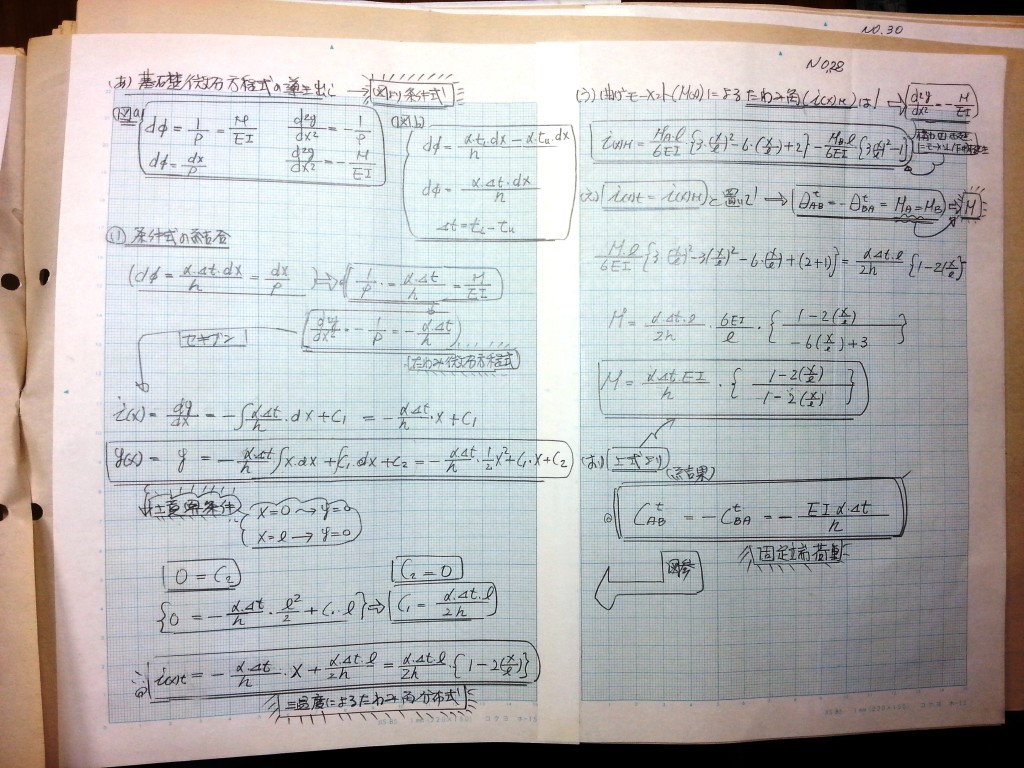 NO.30
NO.28
(あ) 基礎微分方程式の導き出し → (図より条件式)
(図a)
dφ = 1/ρ = M/EI   d²y/dx² = -1/ρ
dφ = dx/ρ   d²y/dx² = -M/EI
(図b)
dφ = (α.tl.dx - α.tu.dx)/h
dφ = α.Δt.dx/h
Δt = tl - tu
(い) 条件式の結合
(dφ = α.Δt.dx/h = dx/ρ) ⇒ (1/ρ = α.Δt/h = M/EI)
d²y/dx² = -1/ρ = -α.Δt/h
(たわみ微分方程式)
セキブン
i(x) = dy/dx = -∫α.Δt/h.dx + C₁ = -α.Δt/h.x + C₁
y(x) = y = -α.Δt/h ∫x.dx + ∫C₁.dx + C₂ = -α.Δt/h.1/2x² + C₁.x + C₂
境界条件
x=0 → y=0
x=l → y=0
0 = C₂
C₂ = 0
{0 = -α.Δt/h.l²/2 + C₁.l} ⇒ C₁ = α.Δt.l/2h
i(x)t = -α.Δt/h.x + α.Δt.l/2h = α.Δt.l/2h.{1-2(x/l)}
温度によるたわみ角分布式
(う) モーメント(M(x))によるたわみ角(i(x)M)は ⇒ d²y/dx² = -M/EI
i(x)M = MA.l/6EI {3.(x/l)²-6.(x/l)+2} - MB.l/6EI {3(x/l)²-1}
(え) i(x)t = i(x)M と置いて → θtAB = -θtBA = MA = MB ⇒ M
M.l/6EI {3.(x/l)²-3(x/l)²-6.(x/l)+(2+1)} = α.Δt.l/2h {1-2(x/l)}
M = α.Δt.l/2h . 6EI/l . {(1-2(x/l))/(-6(x/l)+3)}
M = α.Δt.EI/h . {(1-2(x/l))/(1-2(x/l))}
(お) 上式より
(結果)
CtAB = -CtBA = -EIα.Δt/h
固定端荷重
図参